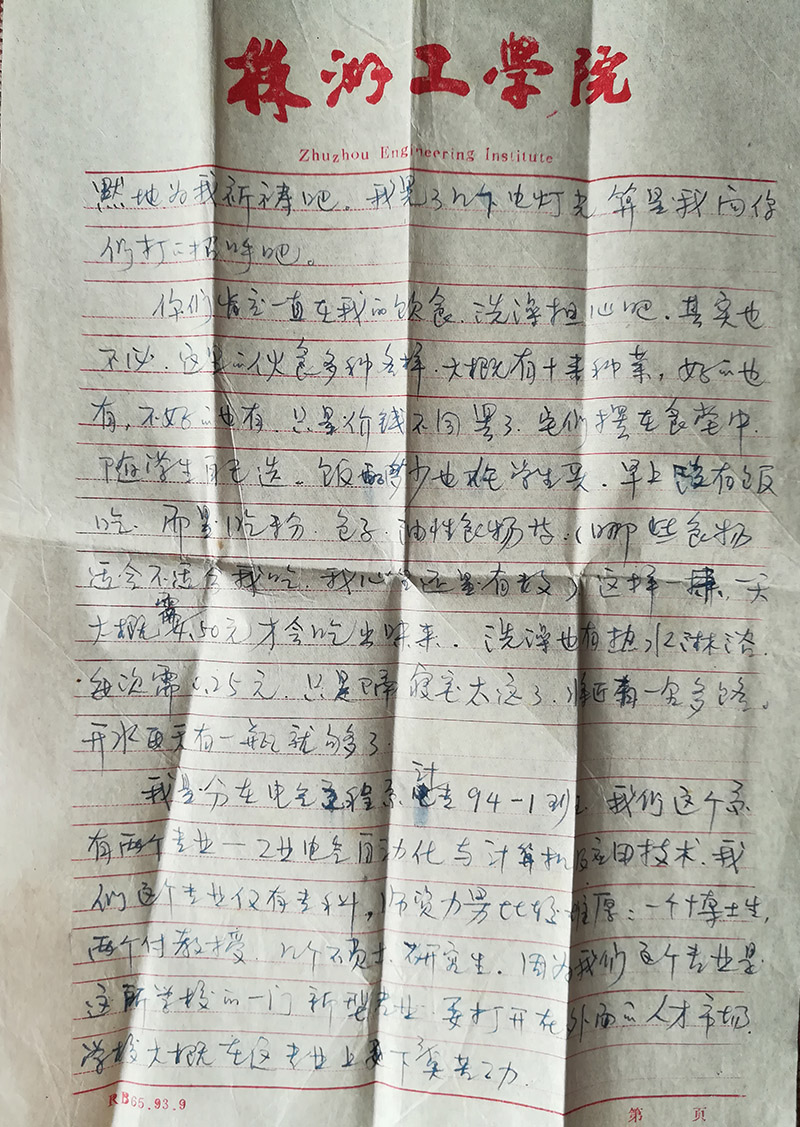 株洲工学院
Zhuzhou Engineering Institute
默地为我祈祷吧。我晃了几下电灯光算是我向你
们打的招呼吧。
你们肯定一直在我的饮食、洗澡担心吧。其实也
不必，这里的伙食多种多样，大概有十来种菜，好的也
有，不好的也有，只是价钱不同罢了。它们摆在食堂中，
随学生自己选。饭多少也由学生买。早上没有饭
吃，而是吃粉、包子、油性食物等。（哪些食物
适合不适合我吃，我心里还是有数）这样一来，一天
大概需4.50元才会吃出味来。洗澡也有热水淋浴，
每次需0.25元，只是离寝室太远了，将近有一里多路。
开水每天有一瓶就够了。
我是分在电气工程系计专94-1班，我们这个系
有两个专业—工业电气自动化与计算机及应用技术，我
们这个专业仅有专科，师资力量比较雄厚：一个博士生，
两个付教授，几个硕士、研究生。因为我们这个专业是
这所学校的一门新型专业，要打开在外面的人才市场，
学校大概在这专业上要下真苦功。
RB65.93.9
第 页